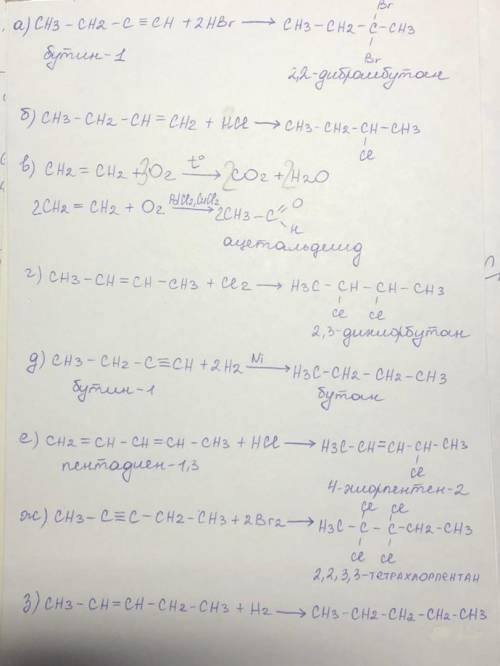 а) CH3-CH2-C≡CH + 2HBr ⟶ CH3-CH2-C(Br)(Br)-CH3
бутин-1
2,2-дибромбутан
б) CH3-CH2-CH=CH2 + HCl ⟶ CH3-CH2-CH(Cl)-CH3
в) CH2=CH2 + 3O2 t°⟶ 2CO2 + 2H2O
2CH2=CH2 + O2 PdCl2, CuCl2⟶ 2CH3-C(=O)-H
ацетальдегид
г) CH3-CH=CH-CH3 + Cl2 ⟶ H3C-CH(Cl)-CH(Cl)-CH3
2,3-дихлорбутан
д) CH3-CH2-C≡CH + 2H2 Ni⟶ H3C-CH2-CH2-CH3
бутин-1 бутан
е) CH2=CH-CH=CH-CH3 + HCl ⟶ H3C-CH=CH-CH(Cl)-CH3
пентадиен-1,3
4-хлорпентен-2
ж) CH3-C≡C-CH2-CH3 + 2Br2 ⟶ H3C-C(Cl)(Cl)-C(Cl)(Cl)-CH2-CH3
2,2,3,3-тетрахлорпентан
з) CH3-CH=CH-CH2-CH3 + H2 ⟶ CH3-CH2-CH2-CH2-CH3